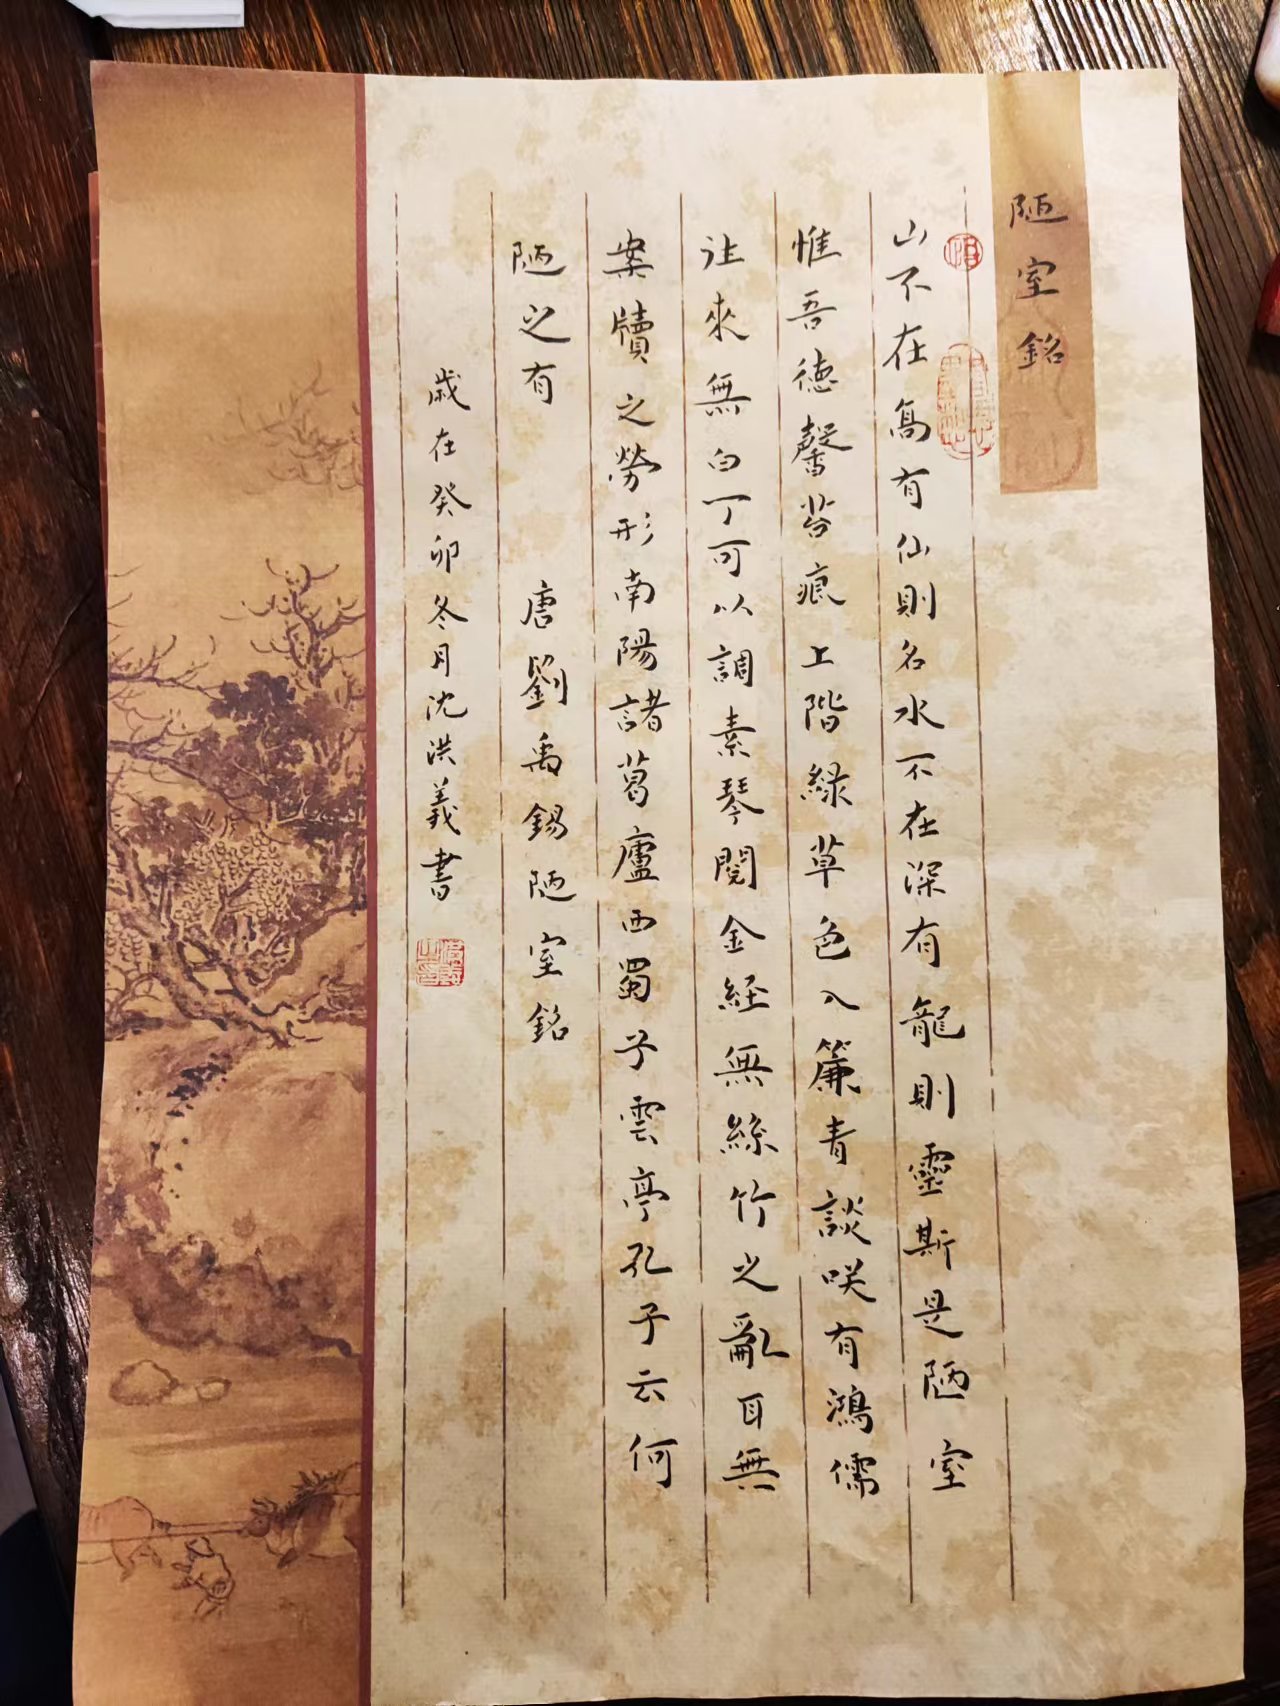 陋室銘
山不在高有仙則名水不在深有龍則靈斯是陋室
惟吾德馨苔痕上階綠草色入簾青談咲有鴻儒
往來無白丁可以調素琴閱金経無絲竹之亂耳無
案牘之勞形南陽諸葛廬西蜀子雲亭孔子云何
陋之有
唐劉禹錫陋室銘
歲在癸卯冬月沈洪義書